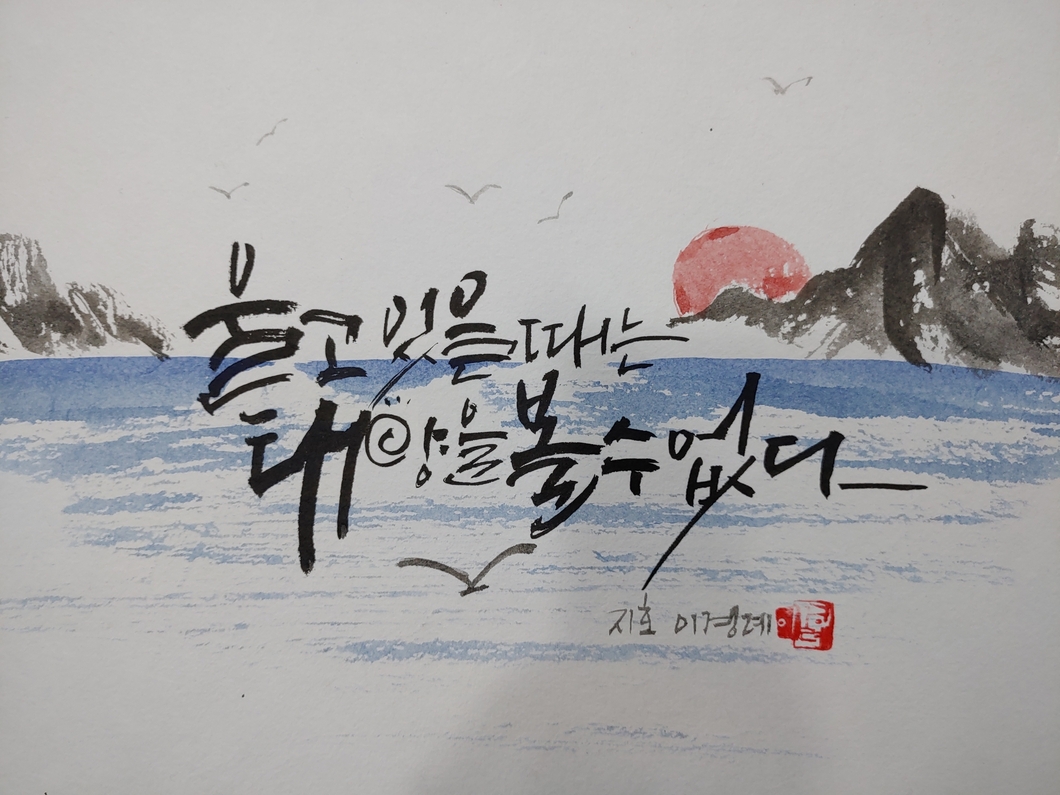 울고 있을 때는
태양을 볼 수 없다
지호 이경례